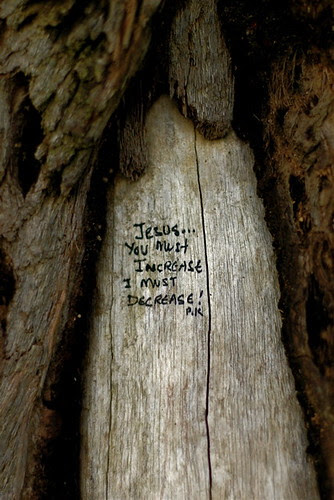 JESUS...
YOU MUST
INCREASE
I MUST
DECREASE!
P.K